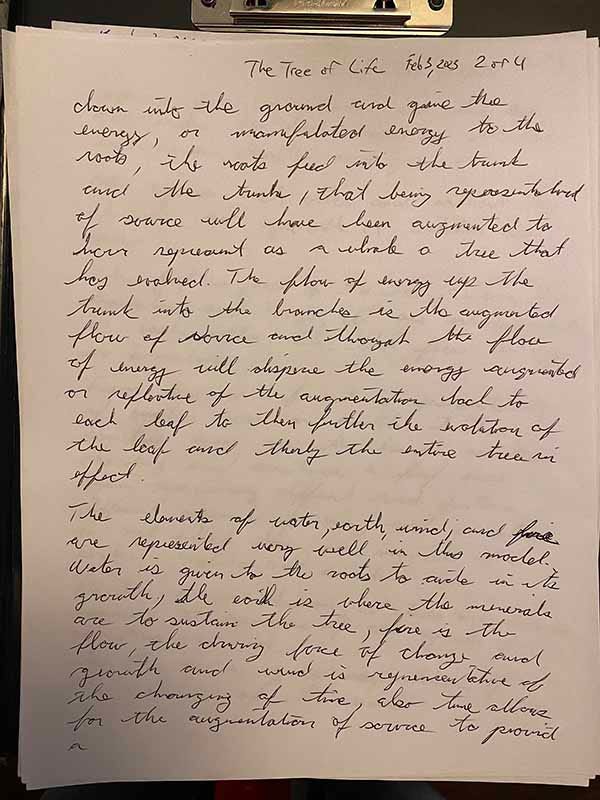 The Tree of Life Feb 3, 2023 2 of 4
down into the ground and give the
energy, or manipulated energy to the
roots, the roots feed into the trunk
and the trunk, that being
of source will have been augmented to
represent as a whole a tree that
has evolved. The flow of energy up the
trunk into the branches is the augmented
flow of source and through the flow
of energy will disperse the energy augmented
or reflective of the augmentation back to
each leaf to then further the evolution of
the leaf and therby the entire tree in
effect.
The elements of water, earth, wind, and fire
are represented very well in this model.
Water is given to the roots to aide in its
growth, the earth is where the minerals
are to sustain the tree, fire is the
flow, the driving force of change and
growth and wind is representative of
the changing of time, also time allows
for the augmentation of source to provid
a